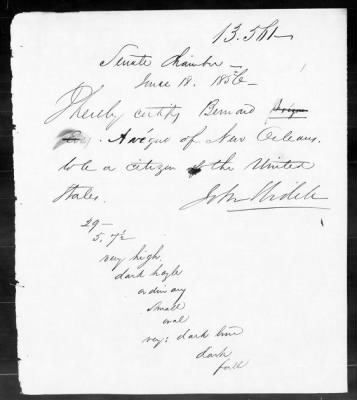 13.561
Senate Chamber
June 18. 1856
I hereby certify Bernard
Avégno of New Orleans.
to be a citizen of the United
States.
John Slidell
29
5. 7½
very high.
dark hazle
ordinary
small
oval
very: dark brn
dark
full